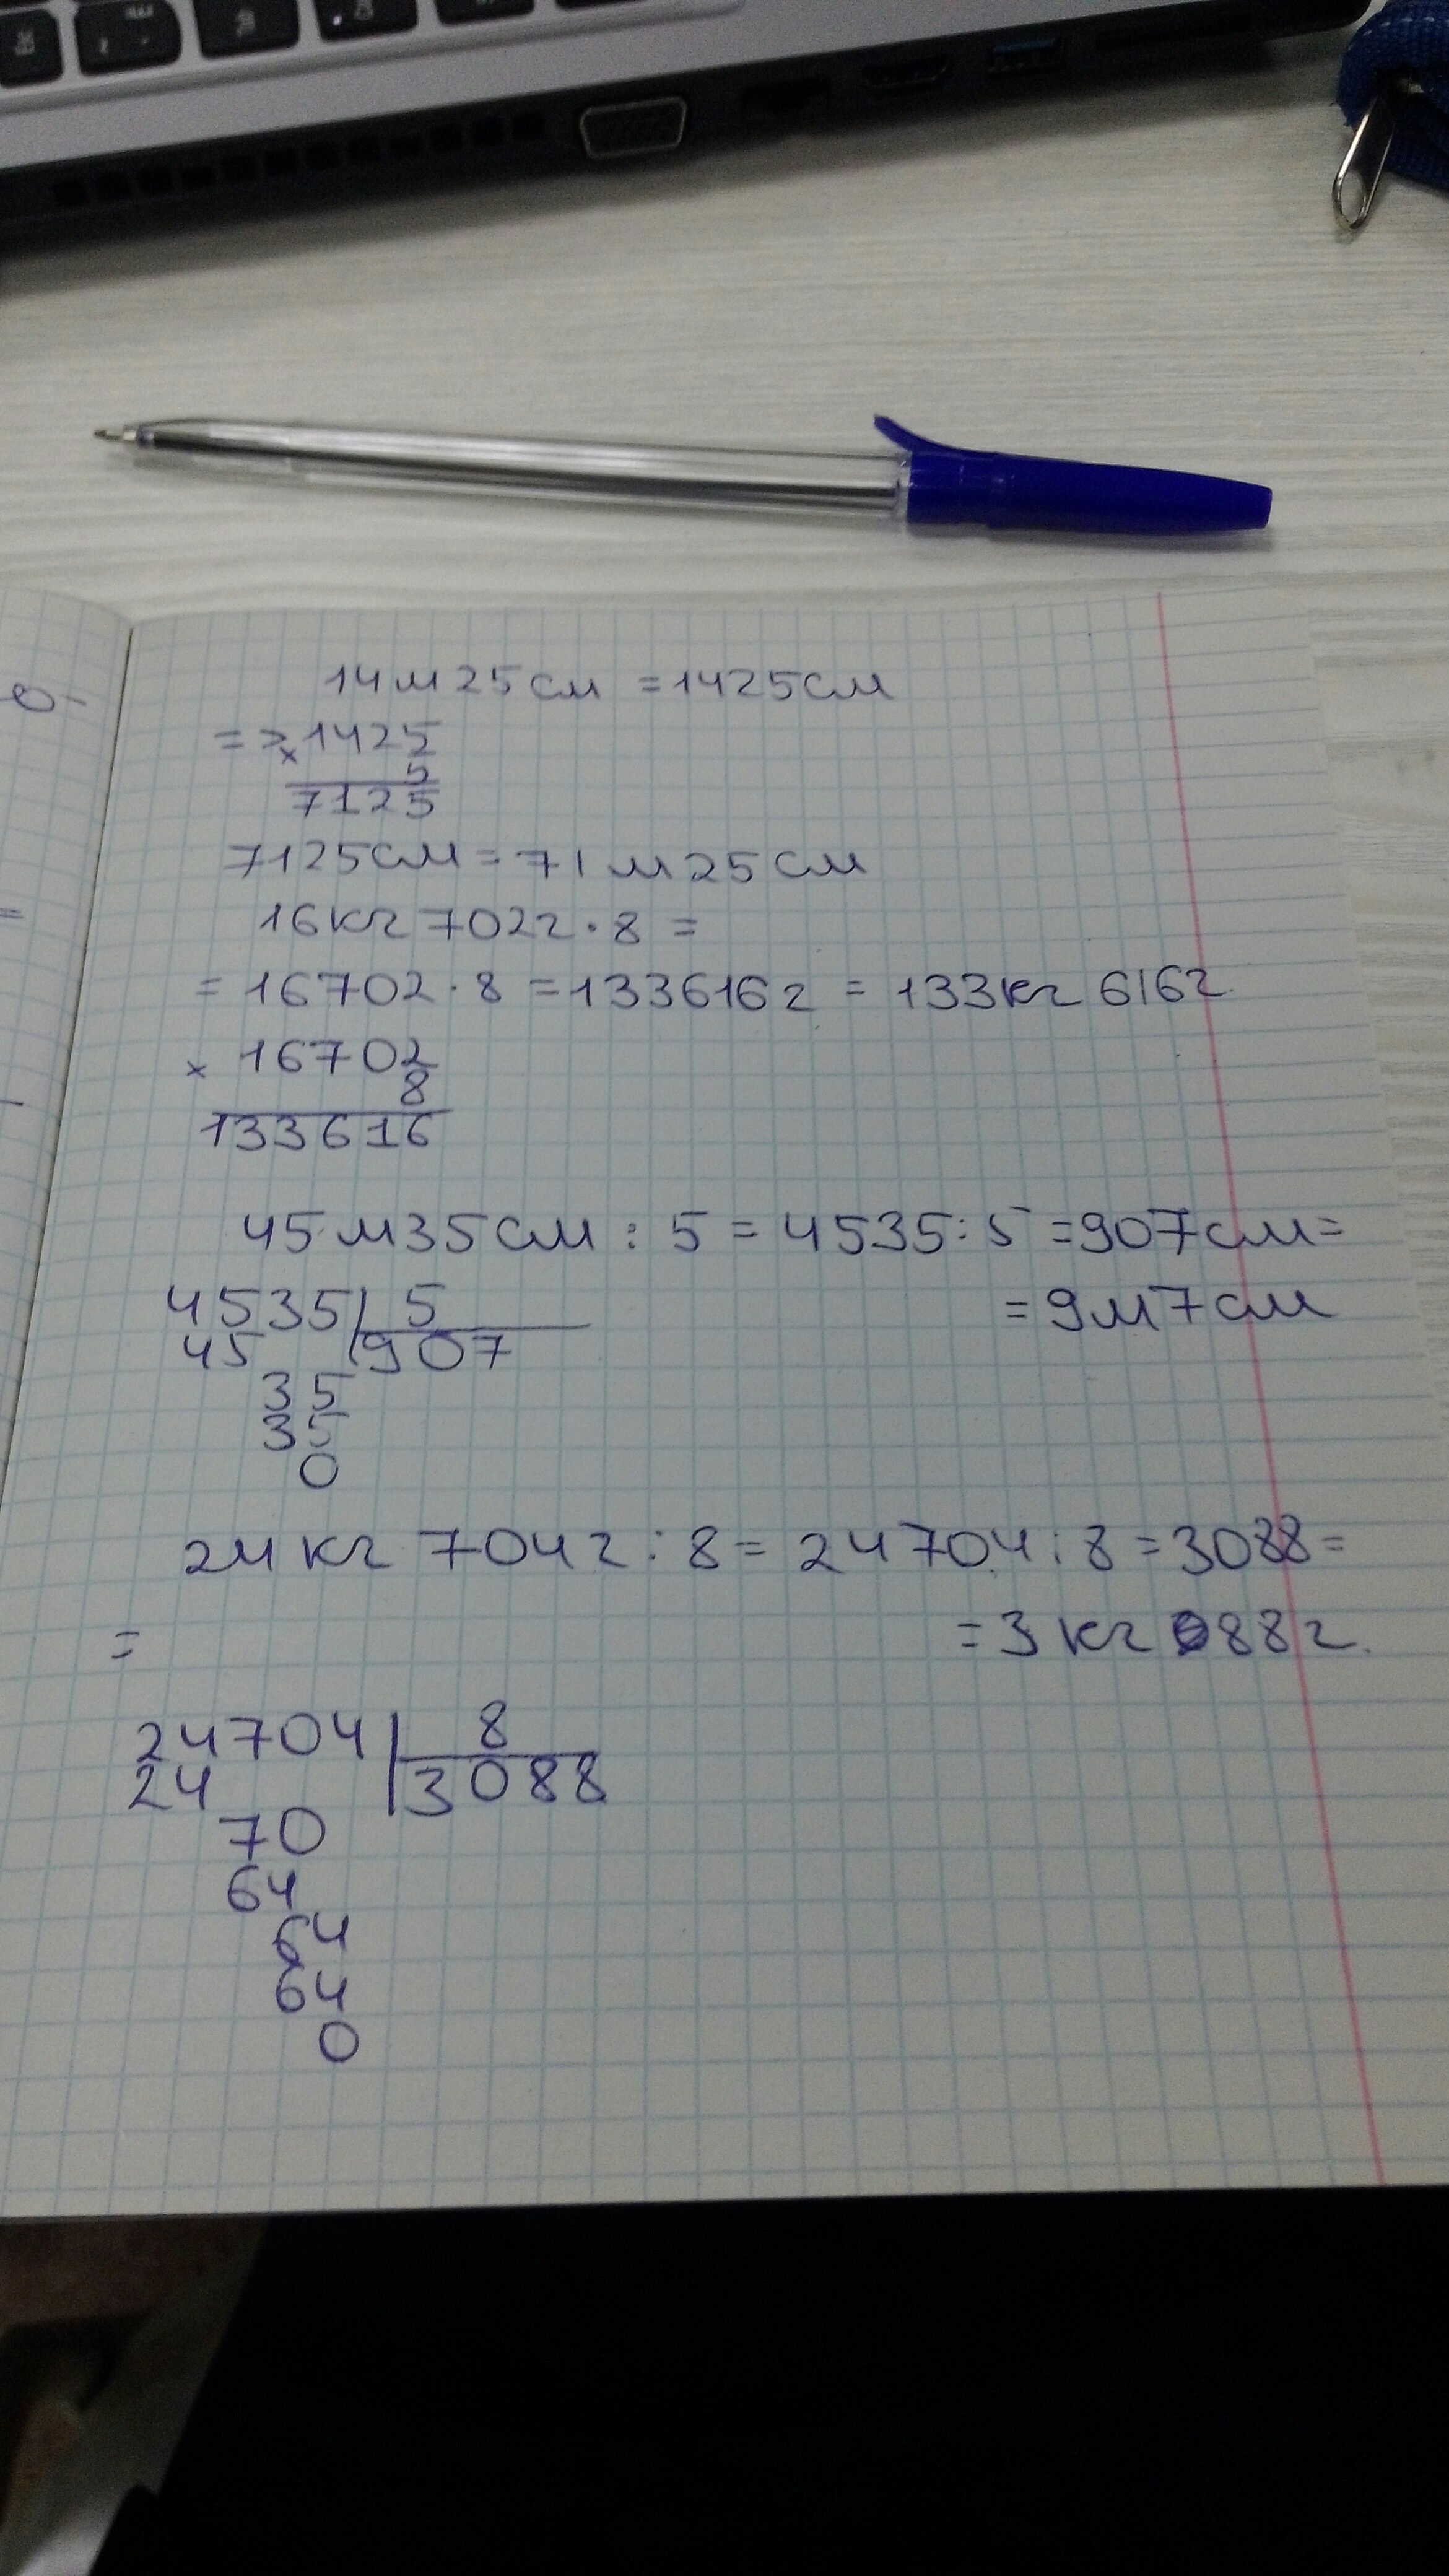 14м25см = 1425см
=> × 1425
5
7125
7125см = 71м25см
16кг702г · 8 =
= 16702 · 8 = 133616г = 133кг 616г.
× 16702
8
133616
45м35см : 5 = 4535 : 5 = 907см =
= 9м7см
4535 5
45 907
35
35
0
24кг 704г : 8 = 24704 : 8 = 3088 =
= = 3кг 088г.
24704 8
24 3088
70
64
64
64
0